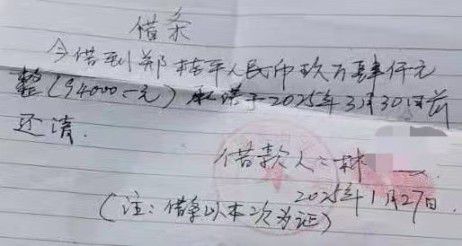 借条
今借到郑桂平人民币玖万肆仟元
整(94000-元) 承诺于2025年3月30日前
还清.
借款人:林
2025年1月27日.
(注:借条以本次为证)